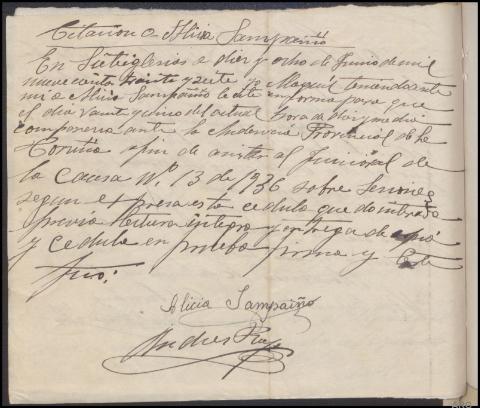 Citacion a Alisia Sampaiño
En Sietiglesias a diez y ocho de Junio de mil
nuevecientos treinta y siete yo Alguacil teniendo ante
mi a Alisia Sampaiño le cite en forma para que
el dia veinte y cinco del actual hora diez y media
comparezca ante la Audencia Provincial de la
Coruña a fin de asistir al Juicio oral de
la Causa Nº 13 de 1936 sobre lesiones
segun espresa esta cedula que doi leida
previa lectura integra y entrega de copia
y cedula en prueba firma y
fico:
Alicia Sampaiño
Andres